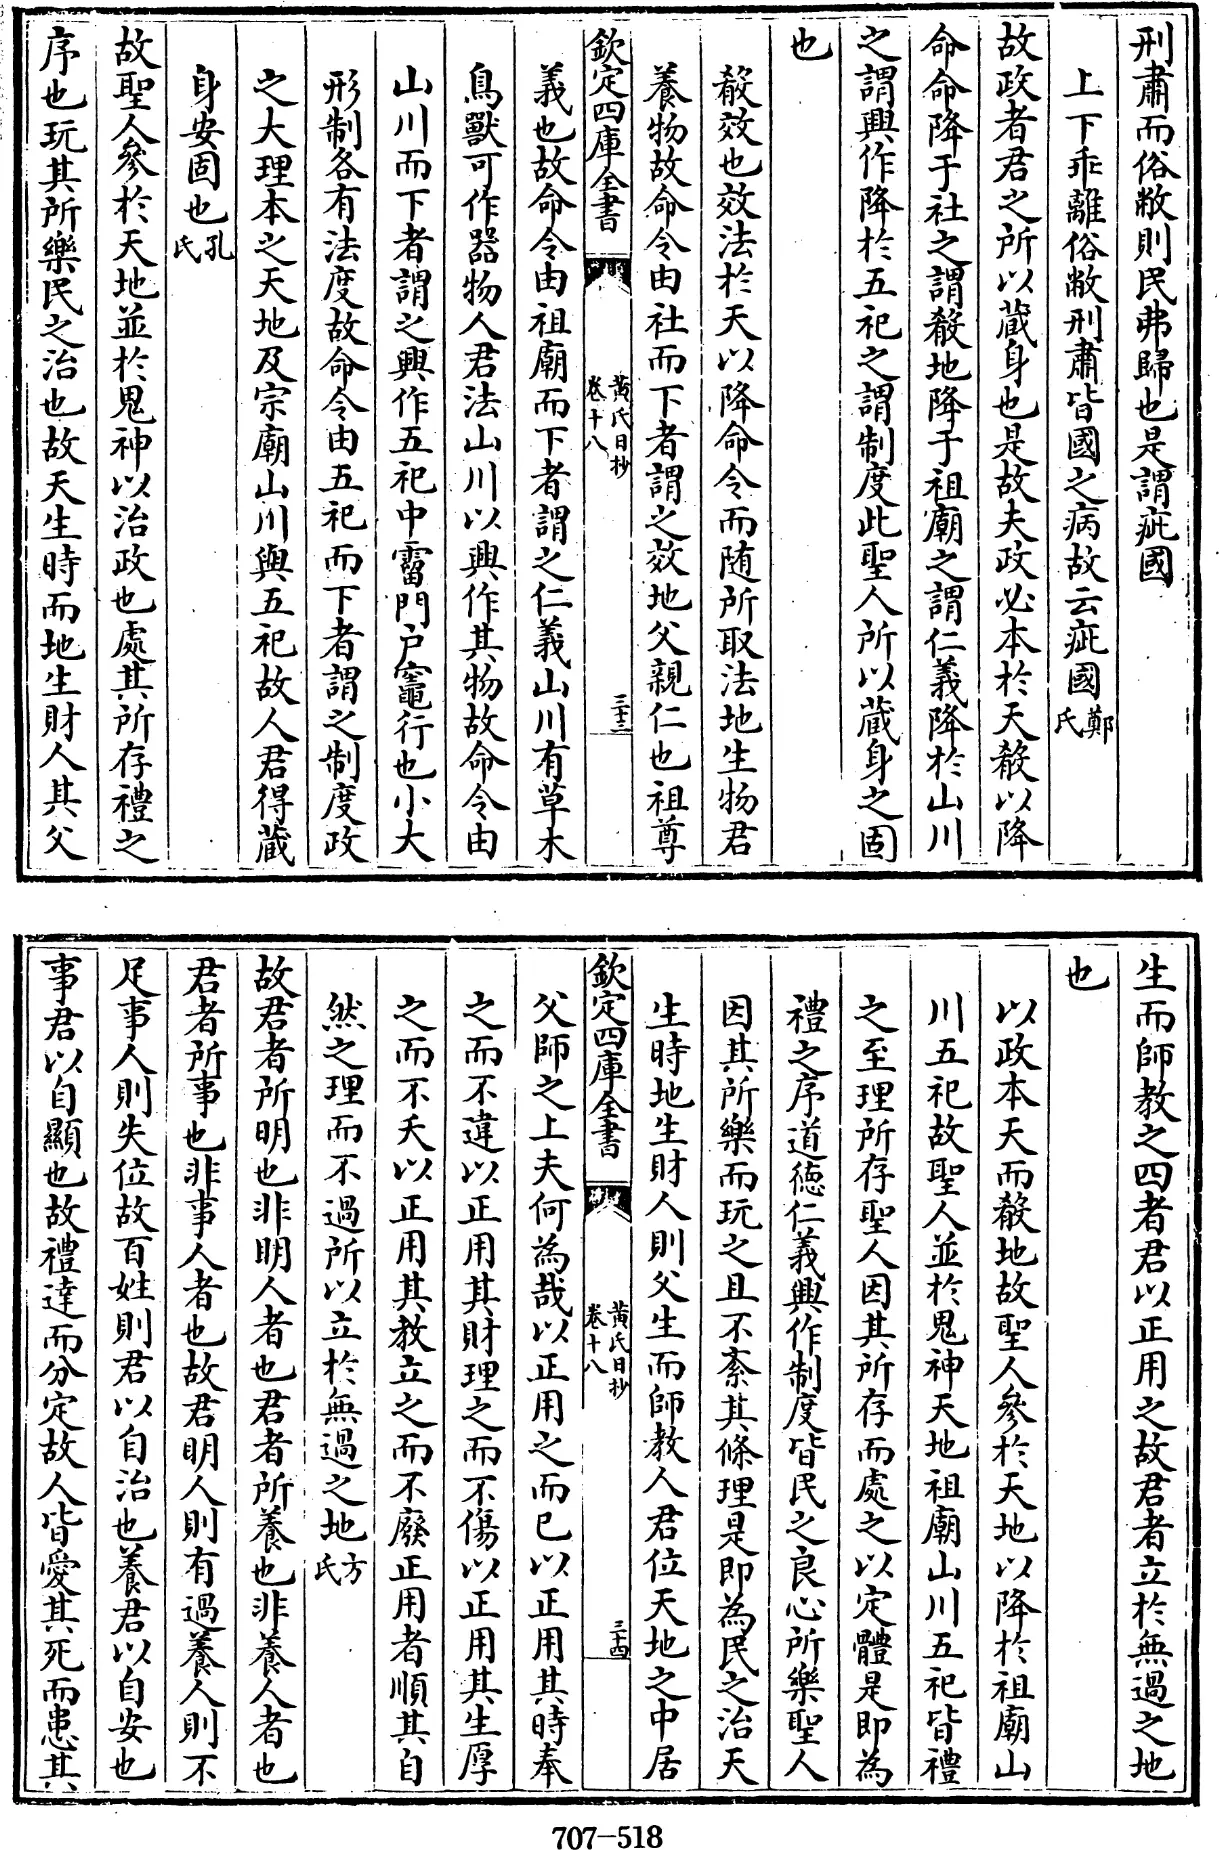 刑肅而俗敝則民弗歸也是謂疵國
上下乖離俗敝刑肅皆國之病故云疵國鄭氏
故政者君之所以藏身也是故夫政必本於天殽以降
命命降于社之謂殽地降于祖廟之謂仁義降於山川
之謂興作降於五祀之謂制度此聖人所以藏身之固
也
殽效也效法於天以降命令而随所取法地生物君
養物故命令由社而下者謂之效地父親仁也祖尊
欽定四庫全書 黄氏日抄卷十八 三十三
義也故命令由祖廟而下者謂之仁義山川有草木
鳥獸可作器物人君法山川以興作其物故命令由
山川而下者謂之興作五祀中霤門户竈行也小大
形制各有法度故命令由五祀而下者謂之制度政
之大理本之天地及宗廟山川與五祀故人君得藏
身安固也孔氏
故聖人參於天地並於鬼神以治政也處其所存禮之
序也玩其所樂民之治也故天生時而地生財人其父
生而師教之四者君以正用之故君者立於無過之地
也
以政本天而殽地故聖人參於天地以降於祖廟山
川五祀故聖人並於鬼神天地祖廟山川五祀皆禮
之至理所存聖人因其所存而處之以定體是即為
禮之序道德仁義興作制度皆民之良心所樂聖人
因其所樂而玩之且不紊其條理是即為民之治天
生時地生財人則父生而師教人君位天地之中居
欽定四庫全書 黄氏日抄卷十八 三十四
父師之上夫何為哉以正用之而已以正用其時奉
之而不違以正用其財理之而不傷以正用其生厚
之而不夭以正用其教立之而不廢正用者順其自
然之理而不過所以立於無過之地方氏
故君者所明也非明人者也君者所養也非養人者也
君者所事也非事人者也故君明人則有過養人則不
足事人則失位故百姓則君以自治也養君以自安也
事君以自顯也故禮達而分定故人皆愛其死而患其
707-518